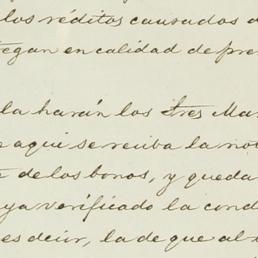 los réditos causados
tegan en calidad de pre
la harán los tres Mar
aqui se reciba la not
de los bonos, y queda
ya verificado la cond
es decir, la de que al